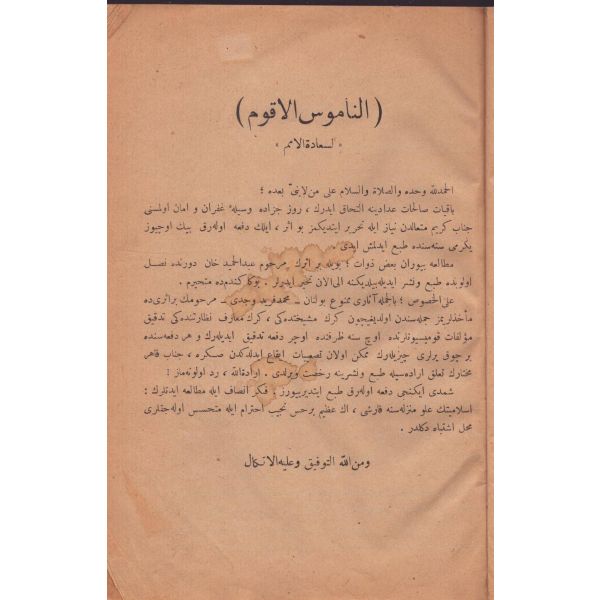 ( الناموس الاقوم )
« لسعادة الامم »
الحمدلله وحده والصلاة والسلام على من لانبىّ بعده ؛
باقيات صالحات عدادينه التحاق ايدرك ، روز جزاده وسيلهٔ غفران و امان اولمسنى
جناب كريم متعالدن نياز ايله تحرير ايتديكمز بو اثر ، ايلك دفعه اوله‌رق بيك اوچيوز
يكرمى سنه‌سنده طبع ايدلمش ايدى .
مطالعه بيوران بعض ذوات ؛ بويله بر اثرك مرحوم عبدالحميد خان دورنده نصل
اولوبده طبع و نشر ايديله‌بيلديكنه الى‌الآن تحير ايدرلر . بوكا كندم‌ده متحيرم .
على‌الخصوص ؛ بالجمله آثارى ممنوع بولنان ــ محمد فريد وجدى ــ مرحومك براثرى‌ده
مأخذلريمز جمله‌سندن اولديغيچون كرك مشيختده‌كى ، كرك معارف نظارتنده‌كى تدقيق
مؤلفات قوميسيونلرنده اوچ سنه ظرفنده اوچر دفعه تدقيق ايديله‌رك و هر دفعه‌سنده
بر چوق يرلرى چيزيله‌رك ممكن اولان تصعيبات ايقاع ايدلدكدن صكره ، جناب قاهر
مختارك تعلق اراده‌سيله طبع ونشرينه رخصت ويرلدى . اوارادةالله ، رد اولونه‌ماز !
شمدى ايكنجى دفعه اوله‌رق طبع ايتديريبيورز . فكر انصاف ايله مطالعه ايدنلرك :
اسلاميتك علو منزله‌سنه قارشى ، اك عظيم برحس نجيب احترام ايله متحسس اوله‌جقلرى
محل اشتباه دكلدر .
ومن الله التوفيق وعليه الاتكال